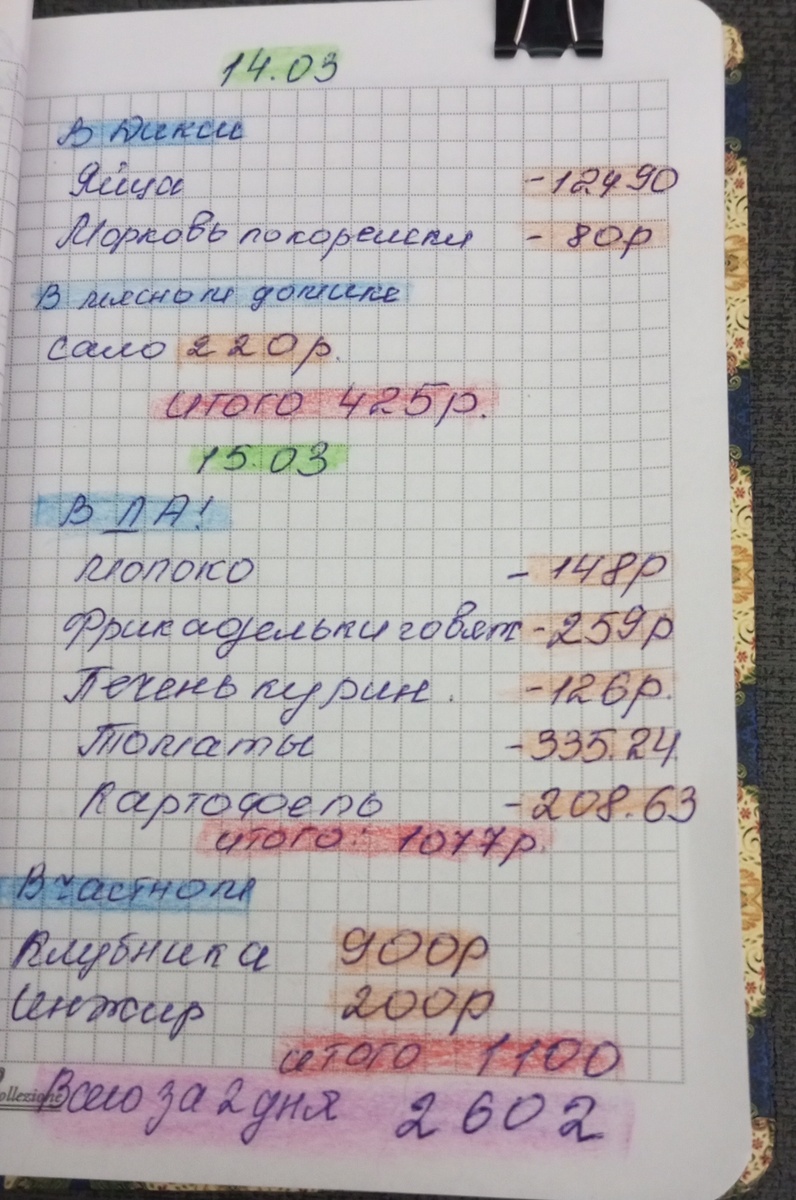 14.03
В Дикси
Яйца - 124 90
Морковь по корейски - 80р
В мясном домике
Сало 220р.
итого 425р.
15.03
В ДА!
Молоко - 148р
Фрикадельки говяж - 259р
Печень курин. - 126р.
Томаты - 335.24
Картофель - 208.63
итого: 1077р.
В частном
Клубника 900р
Инжир 200р
итого 1100
Collezione
Всего за 2 дня 2602